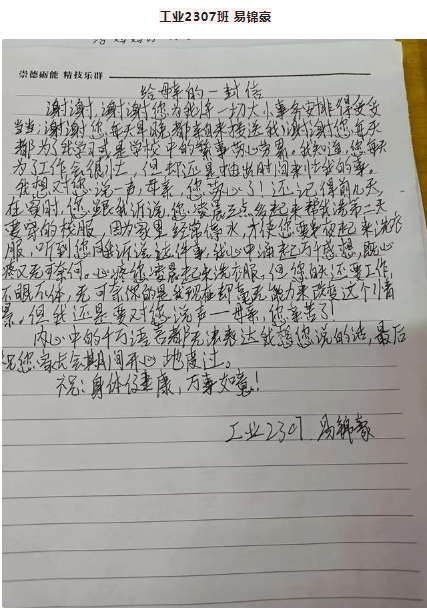 工业2307班 易锦豪
崇德砺能 精技乐群
给母亲的一封信
谢谢,谢谢,谢谢您为我将一切大小事务安排得妥妥
当当;谢谢您每天早晚都来自来接送我;谢谢您每天
都为了我学习或是学校中的繁事劳心劳累。我知道,您每天
为了工作会很忙,但却还是抽出时间来忙我的事。
我想对你说一声:母亲,您辛心了!还记得前几天,
在家时,您跟我诉说,您凌晨三点多起来帮我洗第二天
要穿的校服,因为家里经常停水,才使您要半夜起来洗衣
服,听到您向我诉说这件事,我心中涌起万千感想,既心
疼又无可奈何。心疼您凌晨起来洗衣服,但您的还要工作,
不眠不休,无可奈何的是我现在却毫无能力来改变这个情
景。但我还是要对您说声—母亲,您辛苦了!
内心中的千万语言都无法表达我想您说的话,最后
祝您家长会期间开心地度过。
祝:身体健康,万事如意!
工业2307 易锦豪